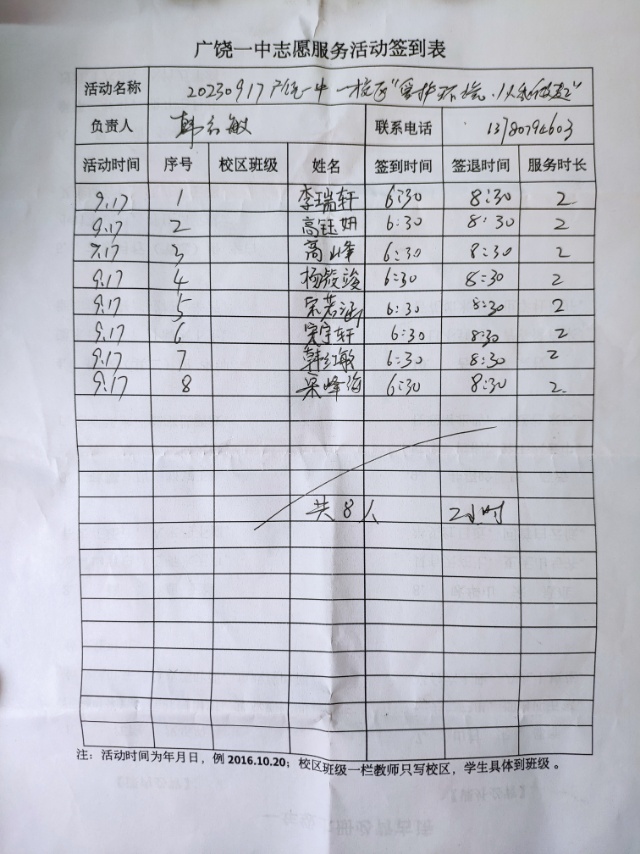 广饶一中志愿服务活动签到表
活动名称 20230917广饶一中一校区“爱护环境·从我做起”
负责人 韩红敏 联系电话
活动时间 序号 校区班级 姓名 签到时间 签退时间 服务时长
9.17 1 李瑞轩 6:30 8:30 2
9.17 2 高钰妍 6:30 8:30 2
9.17 3 高峰 6:30 8:30 2
9.17 4 杨毅竣 6:30 8:30 2
9.17 5 宋若涵 6:30 8:30 2
9.17 6 宋宇轩 6:30 8:30 2
9.17 7 韩红敏 6:30 8:30 2
9.17 8 峰海 6:30 8:30 2
共8人 2小时
注：活动时间为年月日，例 2016.10.20；校区班级一栏教师只写校区，学生具体到班级。